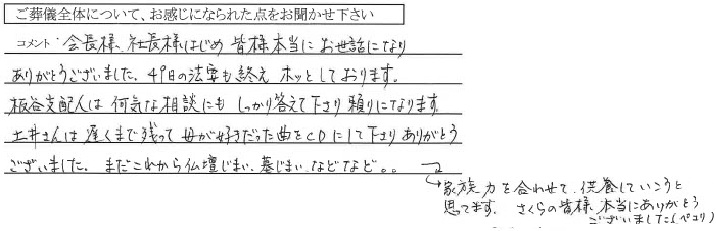 ご葬儀全体について、お感じになられた点をお聞かせ下さい
コメント：会長様、社長様はじめ 皆様本当にお世話になり
ありがとうございました。49日の法要も終え ホッとしております。
板谷支配人は 何気な相談にも しっかり答えて下さり 頼りになります。
土井さんは 遅くまで残って 母が好きだった曲をCDにして下さり ありがとう
ございました。 まだこれから仏壇じまい、墓じまい、などなど。。
家族力を合わせて、供養していこうと
思てます。 さくらの皆様、本当にありがとう
ございました(ペコリ)